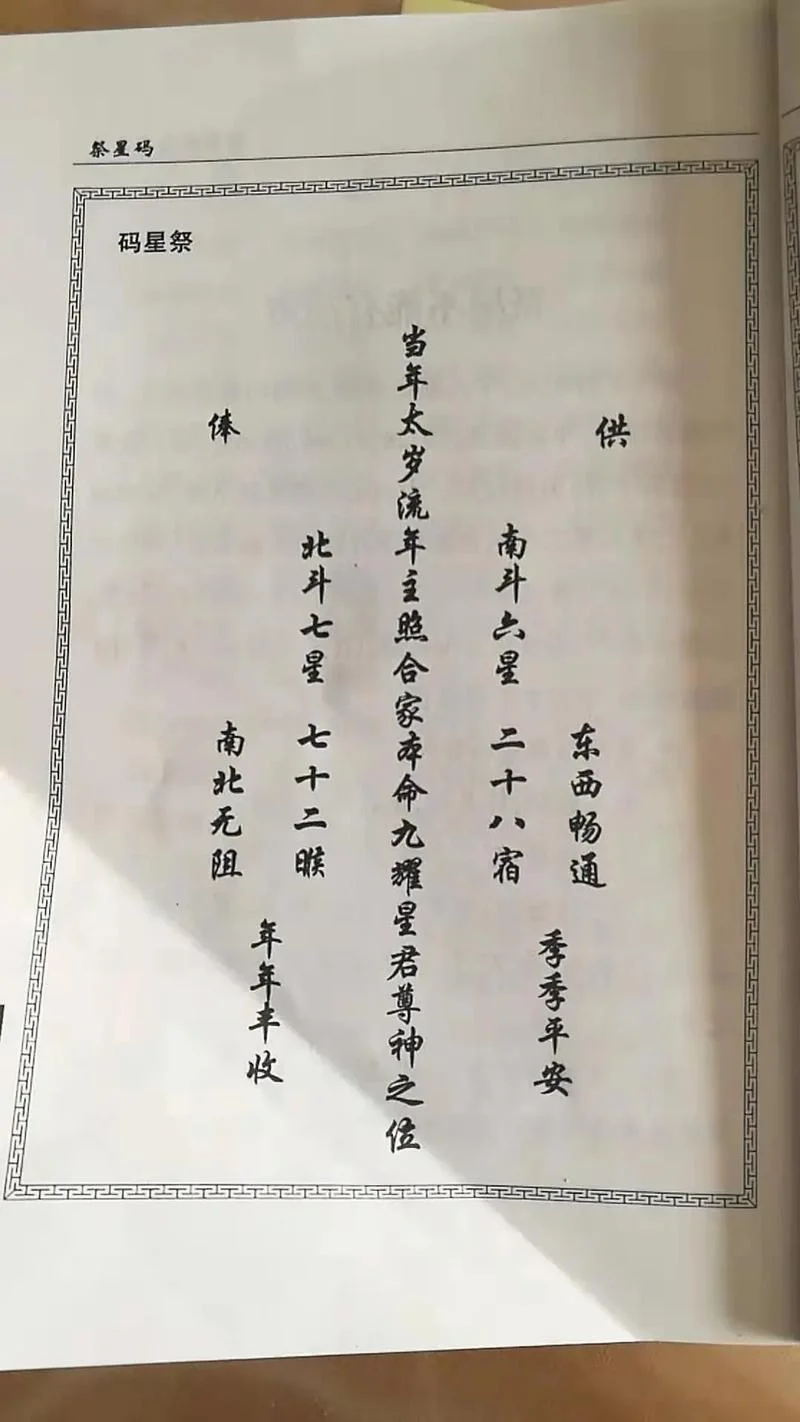 祭星码
码星祭
供
东西畅通
季季平安
南斗六星 二十八宿
当年太岁流年主照合家本命九耀星君尊神之位
北斗七星 七十二睺
年年丰收
南北无阻
俸